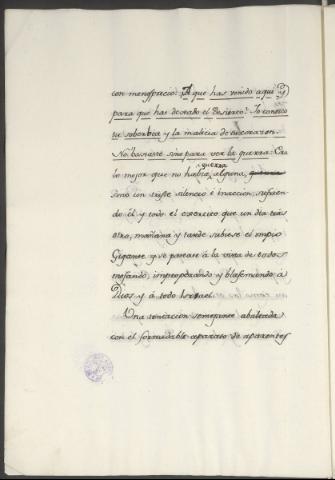 con menosprecio: A que has venido aqui? y
para que has dexado el Desierto? Yo conozco
tu soberbia y la malicia de tu corazon.
No baxaste sino para ver la guerra. Era
lo mejor que no habia guerra alguna,
sino un triste silencio é inaccion, sufrien-
do él y todo el exercito que un dia tras
otro, mañana y tarde subiese el impio
Gigante y se pasease á la vista de todos
mofando, improperando y blasfemando á
Dios y á todo Israel.
Una tentacion semejante abultada
con el formidable aparato de aparentes